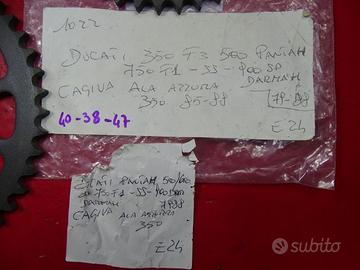 1022
DUCATI 350 F3 500 PANTAH
750 F1 - SS - 900 SD
DARMAH
CAGIVA ALA AZZURRA
350 85-88
79-88
40-38-47
E24
DUCATI PANTAH 500/600
750 F1 - SS - 900
DARMAH
CAGIVA ALA AZZURRA
350
E24
subito